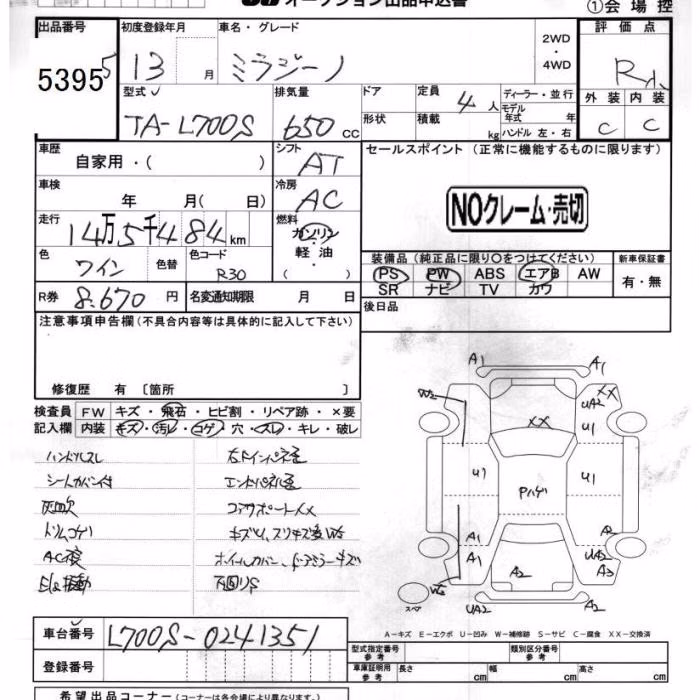 オークション出品申込書
①会場控
出品番号 初度登録年月 車名・グレード 2WD・4WD 評価点
53955 13 月 ミラジーノ R
型式 排気量 ドア 定員 4人 ディーラー・並行 外装 内装
TA-L700S 650 cc 形状 積載 kg モデル年式 年 ハンドル 左・右 C C
車歴 自家用・( ) シフト AT セールスポイント (正常に機能するものに限ります)
車検 年 月( 日) 冷房 AC
NOクレーム・売切
走行 14万5千484km 燃料 ガソリン・軽油・( )
色 ワイン 色替 色コード R30
装備品(純正品に限り〇をつけてください) 新車保証書
PS PW ABS エアB AW 有・無
SR ナビ TV カワ
R券 8,670円 名変通知期限 月 日 後日品
注意事項申告欄(不具合内容等は具体的に記入して下さい)
修復歴 有 〔箇所 〕
検査員 FW キズ・飛石・ヒビ割・リペア跡・×要
記入欄 内装 キズ・汚レ・コゲ・穴・スレ・キレ・破レ
ハンドルスレ
シートカバー付
灰皿欠
トリムコゲ
コアサポートXX
ホイールカバー、ドアミラーキズ
下回りS
A1 A1
W2 XX
UA2
XX U1
U1 U1
Pハゲ
A1 A2
A1 UA2
A2 A3
W2
スペア UA2 A2
A-キズ E-エクボ U-凹み W-補修跡 S-サビ C-腐食 XX-交換済
車台番号 L700S-0241351
登録番号
型式指定番号 参考 類別区分番号 参考
車庫証明用 参考 長さ cm 幅 cm 高さ cm
希望出品コーナー(コーナーは各会場により異なります。)